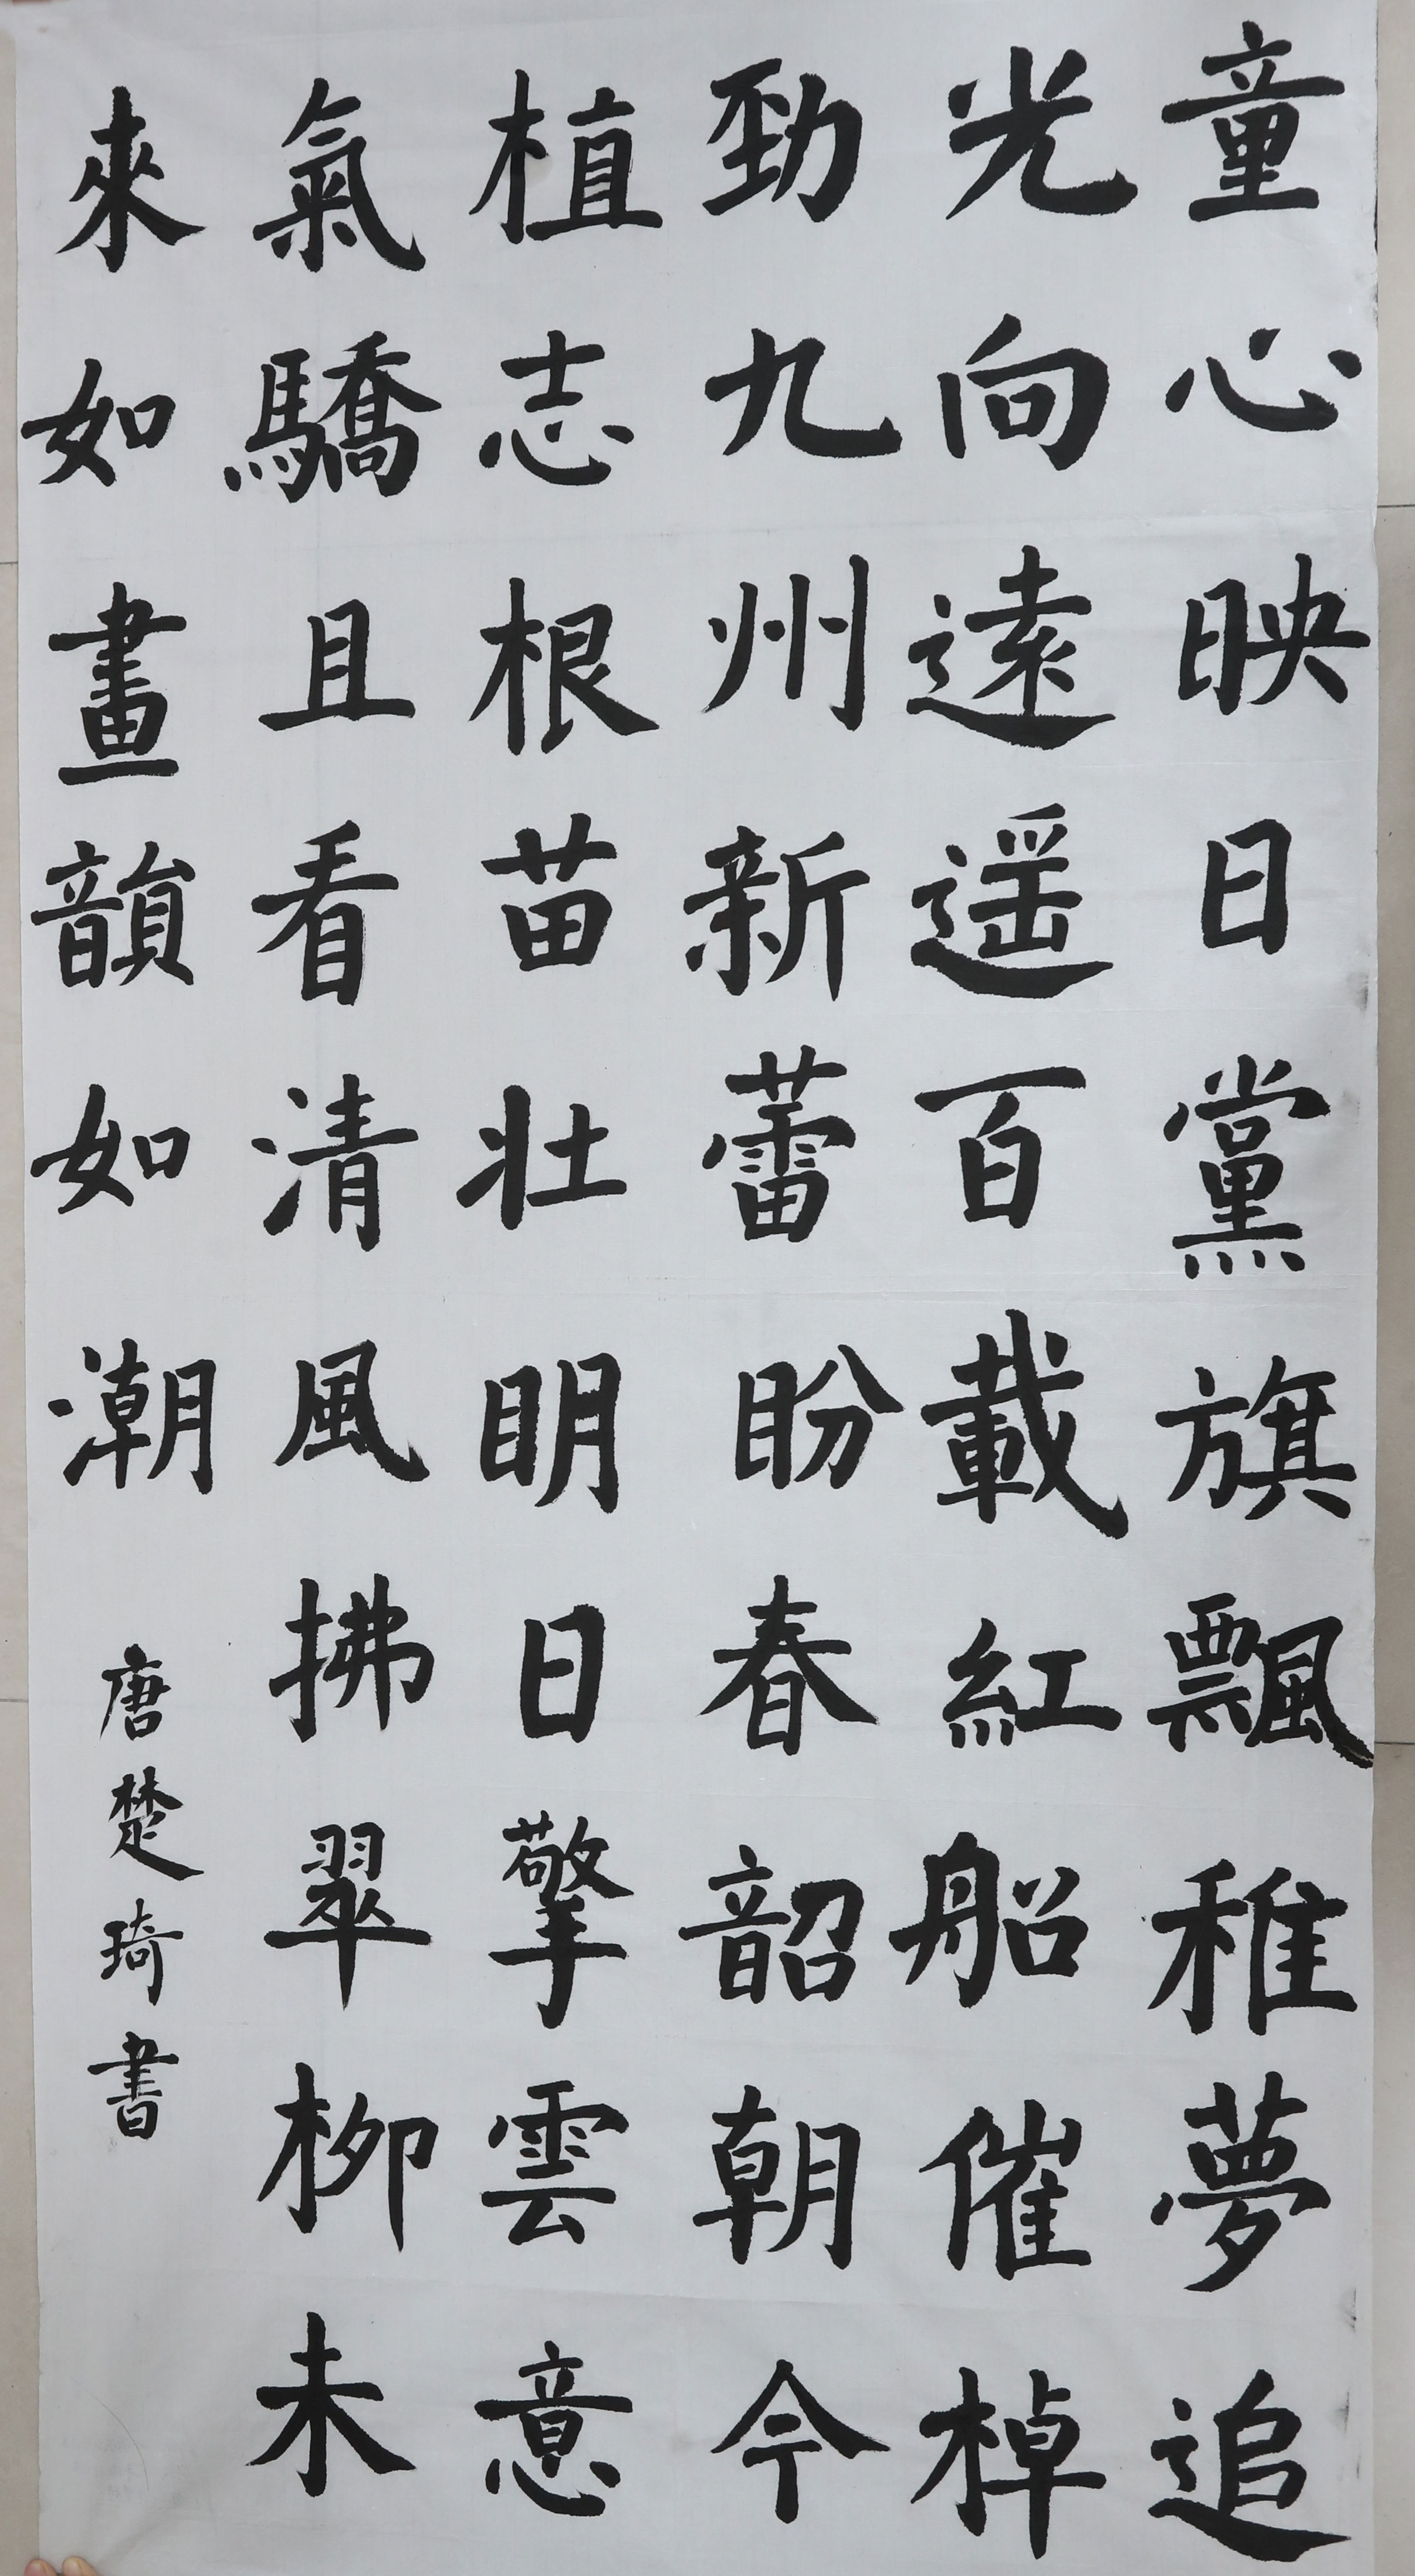 童心映日黨旗飄稚夢追
光向遠遥百載紅船催棹
勁九州新蕾盼春韶朝今
植志根苗壯明日擎雲意
氣驕且看清風拂翠柳未
來如畫韻如潮
唐楚琦書